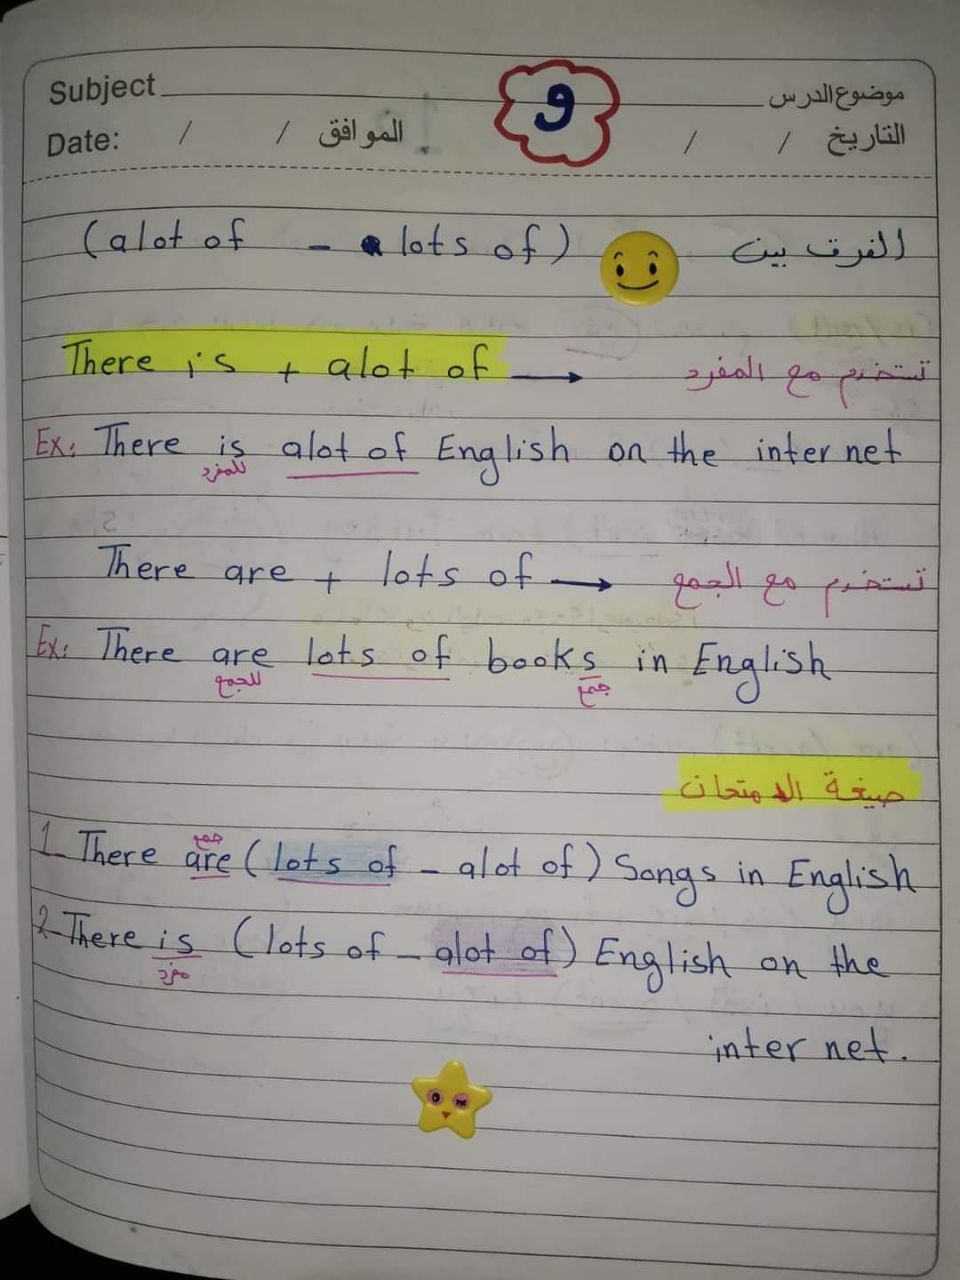 Subject موضوع الدرس
9
Date: / / الموافق / / التاريخ
الفرق بين (alot of - lots of)
There is + alot of → تستخدم مع المفرد
Ex: There is alot of English on the internet
للمفرد
There are + lots of → تستخدم مع الجمع
Ex: There are lots of books in English
للجمع جمع
صيغة الامتحان
جمع
1- There are (lots of - alot of) Songs in English
2- There is (lots of - alot of) English on the
مفرد
internet.